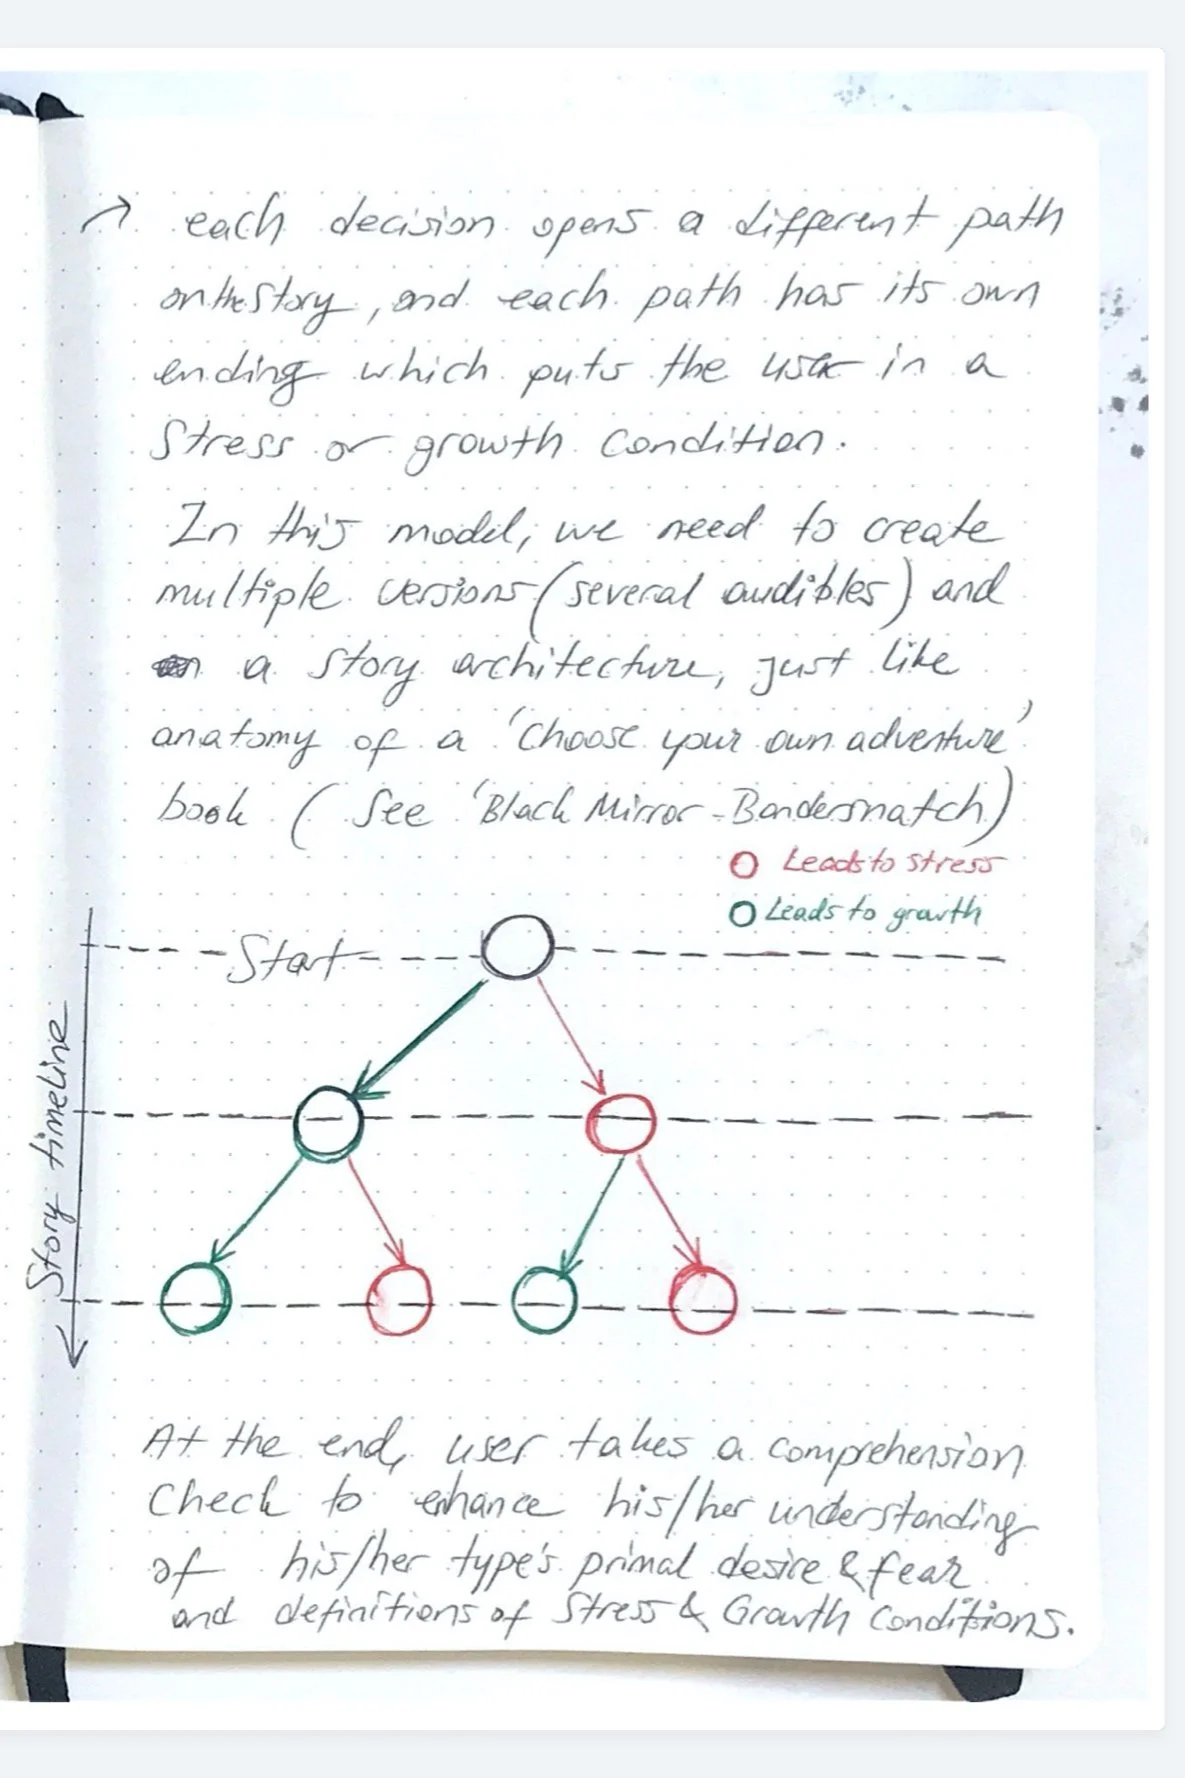 → each decision opens a different path
on the story, and each path has its own
ending which puts the user in a
Stress or growth condition.
In this model, we need to create
multiple versions (several audibles) and
a story architecture, just like
anatomy of a 'Choose your own adventure'
book (See 'Black Mirror - Bandersnatch)
Leads to stress
Leads to growth
Start
Story timeline
At the end, user takes a comprehension
Check to enhance his/her understanding
of his/her type's primal desire & fear
and definitions of Stress & Growth Conditions.